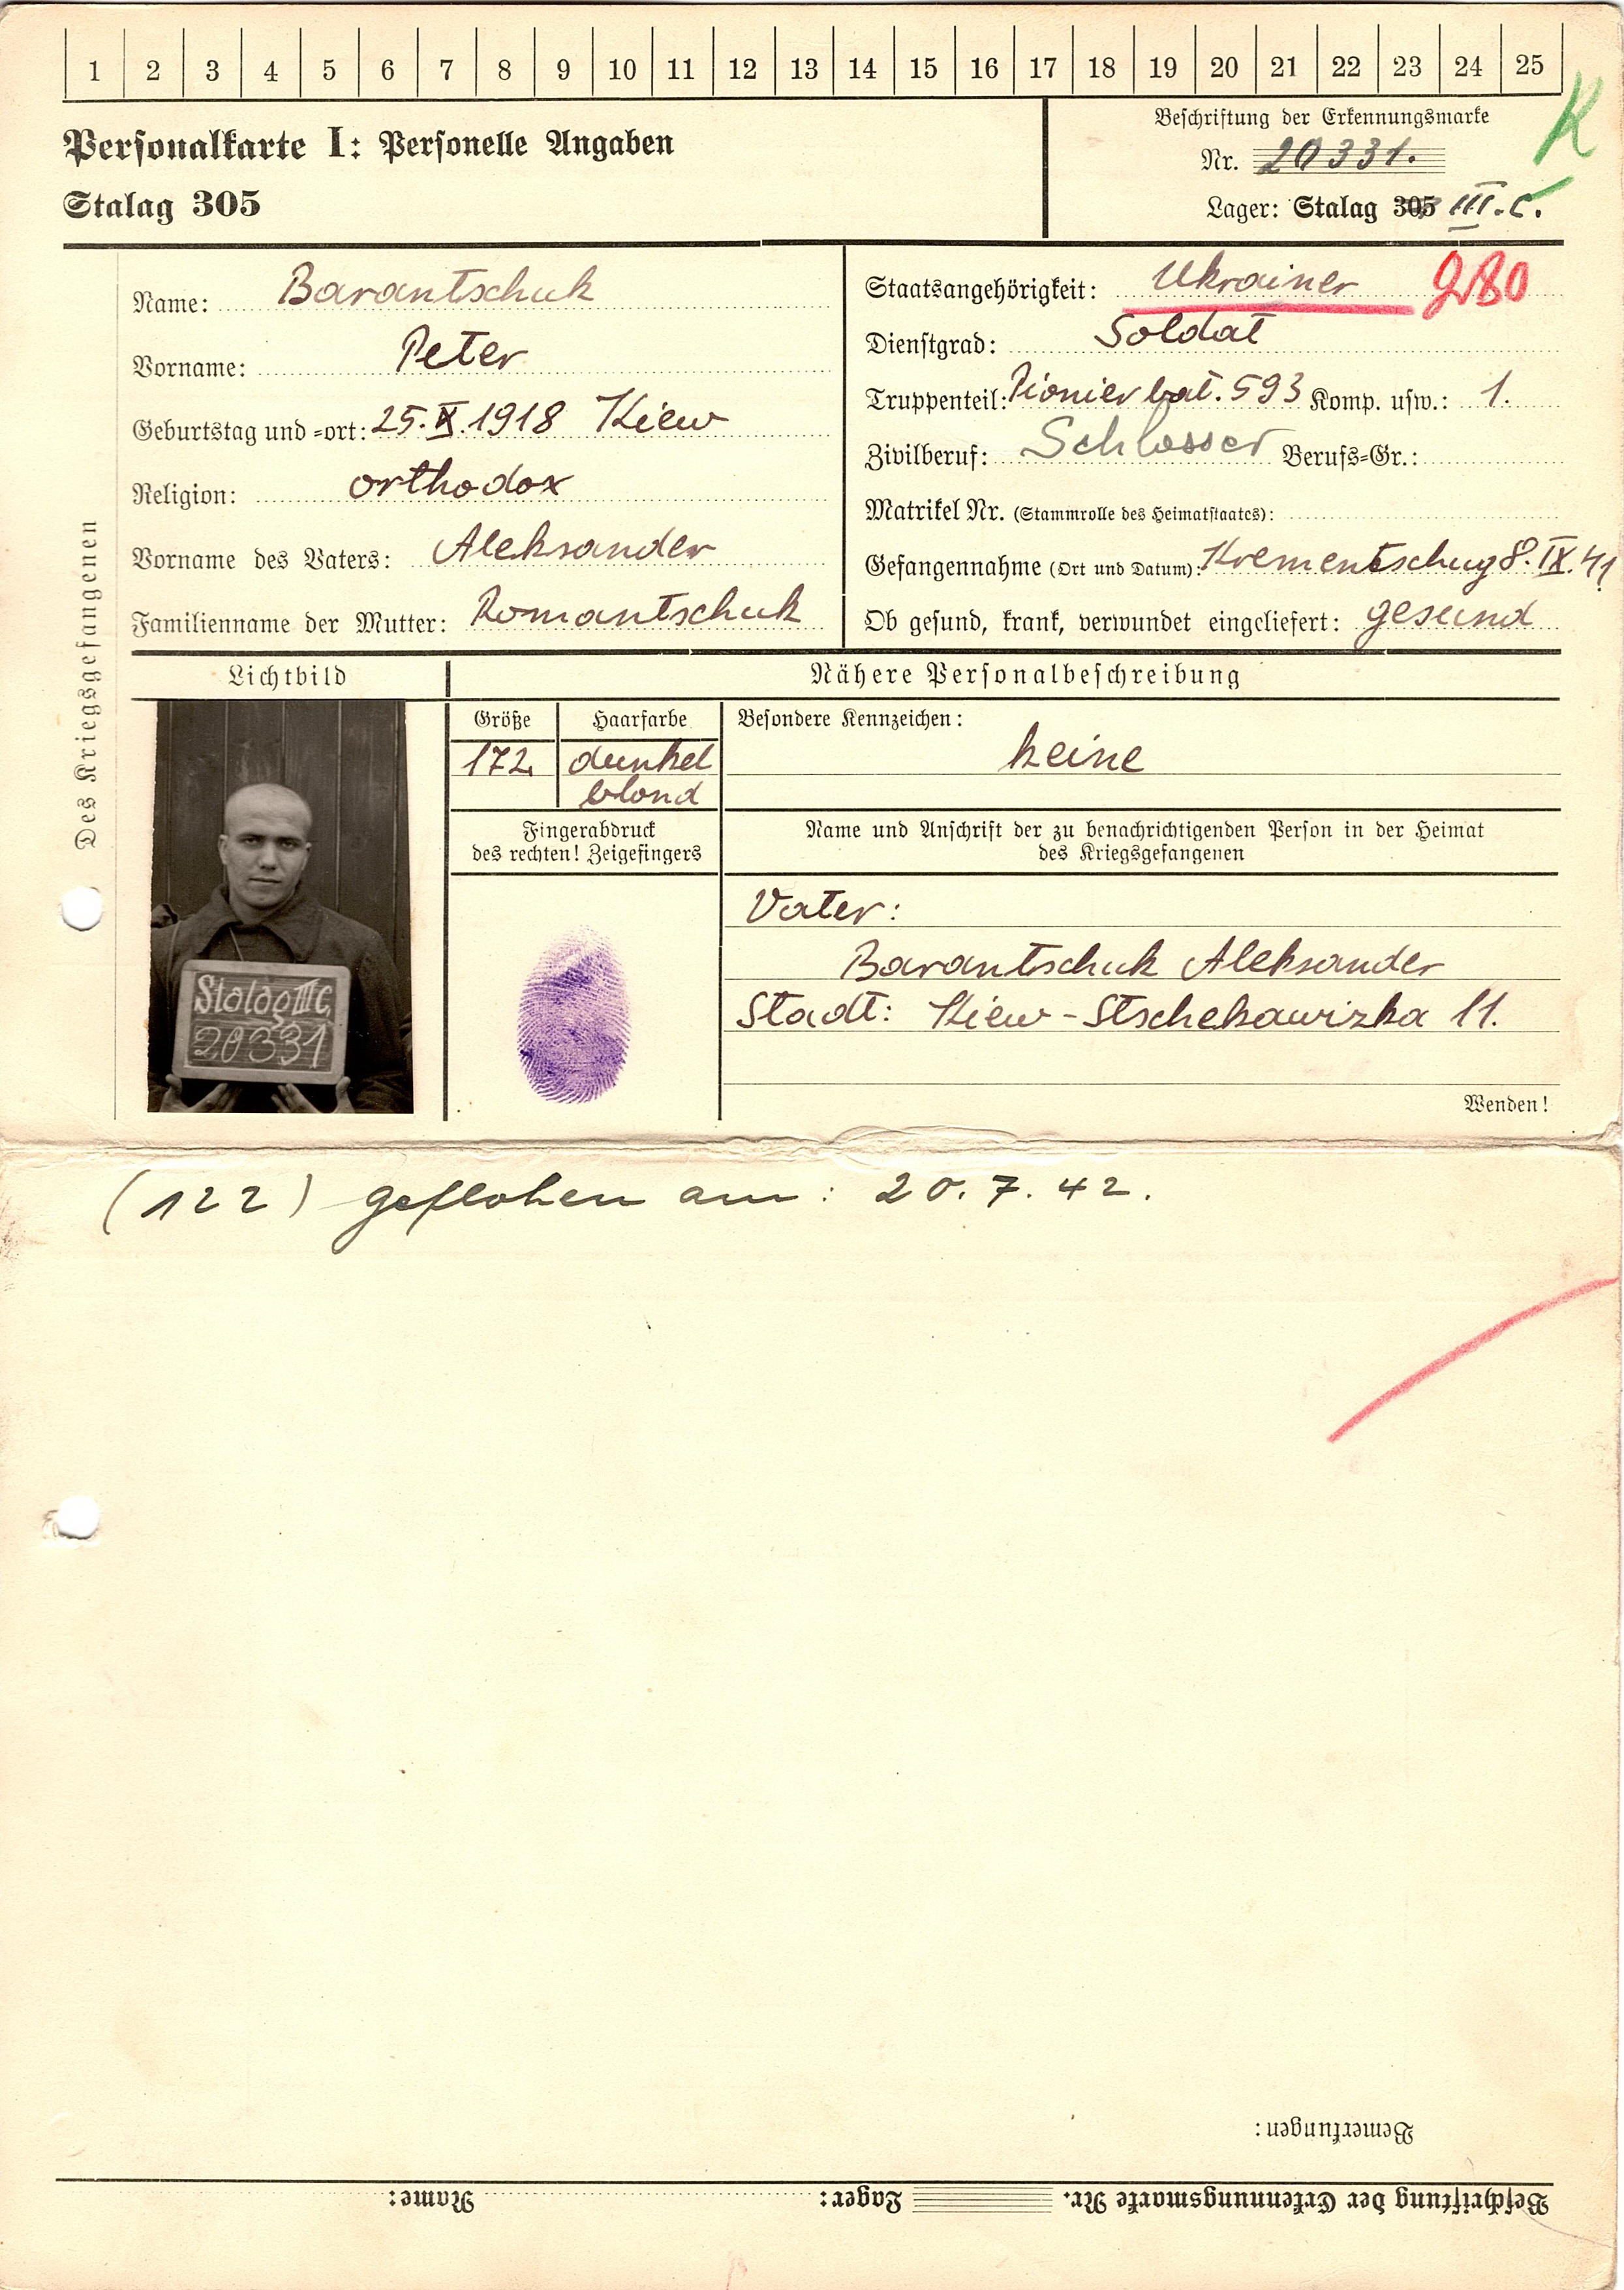 1 2 3 4 5 6 7 8 9 10 11 12 13 14 15 16 17 18 19 20 21 22 23 24 25
Personalkarte I: Personelle Angaben
Stalag 305
Beschriftung der Erkennungsmarke
Nr. 20331.
Lager: Stalag 305 III.C.
K
Des Kriegsgefangenen
Name: Barantschuk
Vorname: Peter
Geburtstag und -ort: 25.X.1918 Kiew
Religion: orthodox
Vorname des Vaters: Aleksander
Familienname der Mutter: Romantschuk
Staatsangehörigkeit: Ukrainer
Dienstgrad: Soldat
Truppenteil: Pionier bat. 593 Komp. usw.: 1.
Zivilberuf: Schlosser Berufs-Gr.:
Matrikel Nr. (Stammrolle des Heimatstaates):
Gefangennahme (Ort und Datum): Krementschug 8.IX.41
Ob gesund, krank, verwundet eingeliefert: gesund
Lichtbild
Nähere Personalbeschreibung
Größe
172
Haarfarbe
dunkel
blond
Besondere Kennzeichen:
keine
Fingerabdruck
des rechten! Zeigefingers
Name und Anschrift der zu benachrichtigenden Person in der Heimat
des Kriegsgefangenen
Vater:
Barantschuk Aleksander
Stadt: Kiew-Stschekawizka 11.
Wenden!
Stalag III C.
20331
(122) geflohen am: 20.7.42.
Bemerkungen:
Beschriftung der Erkennungsmarke Nr. Lager: Name: